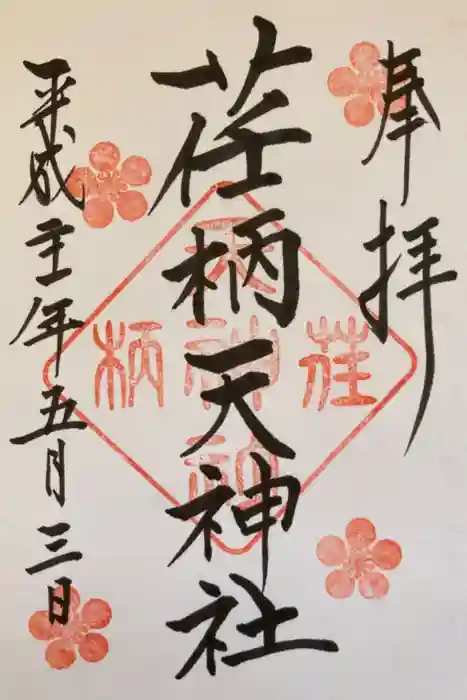 奉拝
荏柄天神社
平成年五月三日
荏柄天神社